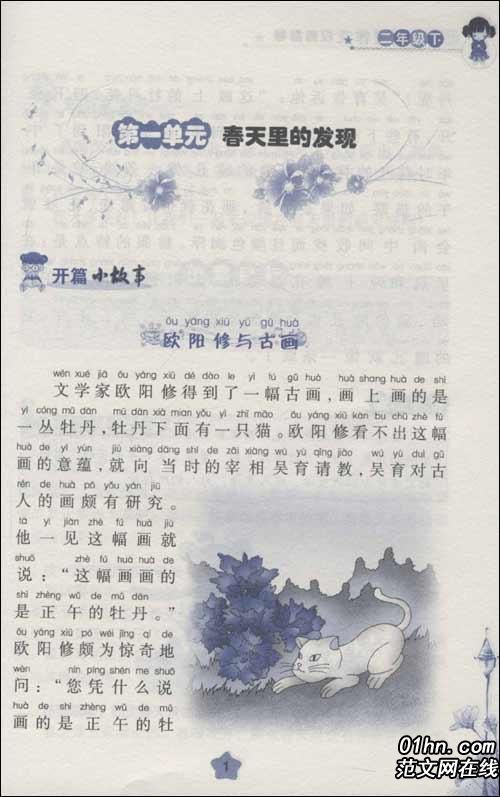 二年级下
第一单元 春天里的发现
开篇小故事
ōu yáng xiū yǔ gǔ huà
欧阳修与古画
wén xué jiā ōu yáng xiū dé dào le yì fú gǔ huà huà shang huà de shì
文学家欧阳修得到了一幅古画,画上画的是
yì cóng mǔ dān mǔ dān xià mian yǒu yì zhī māo ōu yáng xiū kàn bu chū zhè fú
一丛牡丹,牡丹下面有一只猫。欧阳修看不出这幅
huà de yì yùn jiù xiàng dāng shí de zǎi xiàng wú yù qǐng jiào wú yù duì gǔ
画的意蕴,就向当时的宰相吴育请教,吴育对古
rén de huà pō yǒu yán jiū
人的画颇有研究。
tā yí jiàn zhè fú huà jiù
他一见这幅画就
shuō zhè fú huà huà de
说:“这幅画画的
shì zhèng wǔ de mǔ dān
是正午的牡丹。”
ōu yáng xiū pō wéi jīng qí de
欧阳修颇为惊奇地
wèn nín píng shén me shuō
问:“您凭什么说
huà de shì zhèng wǔ de mǔ
画的是正午的牡
1
01hn.com
范文网在线